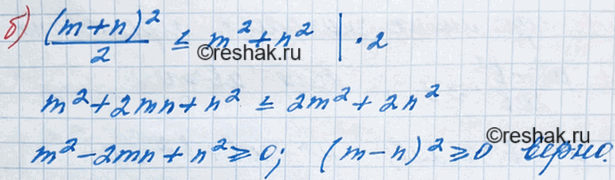 б) (m+n)²/2 ≤ m²+n² | · 2
©reshak.ru
m²+2mn+n² ≤ 2m²+2n²
m²-2mn+n² ≥ 0; (m-n)² ≥ 0 верно.